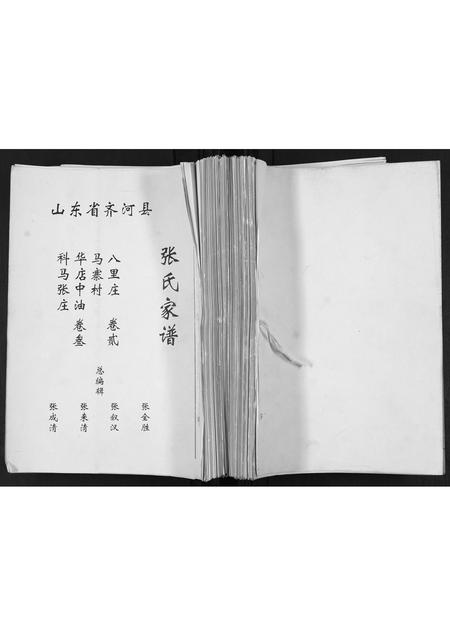 山东省齐河县
张氏家谱
八里庄 卷贰
马寨村
华店中油 卷叁
科马张庄
总编辑
张金胜
张叙汉
张来清
张成清